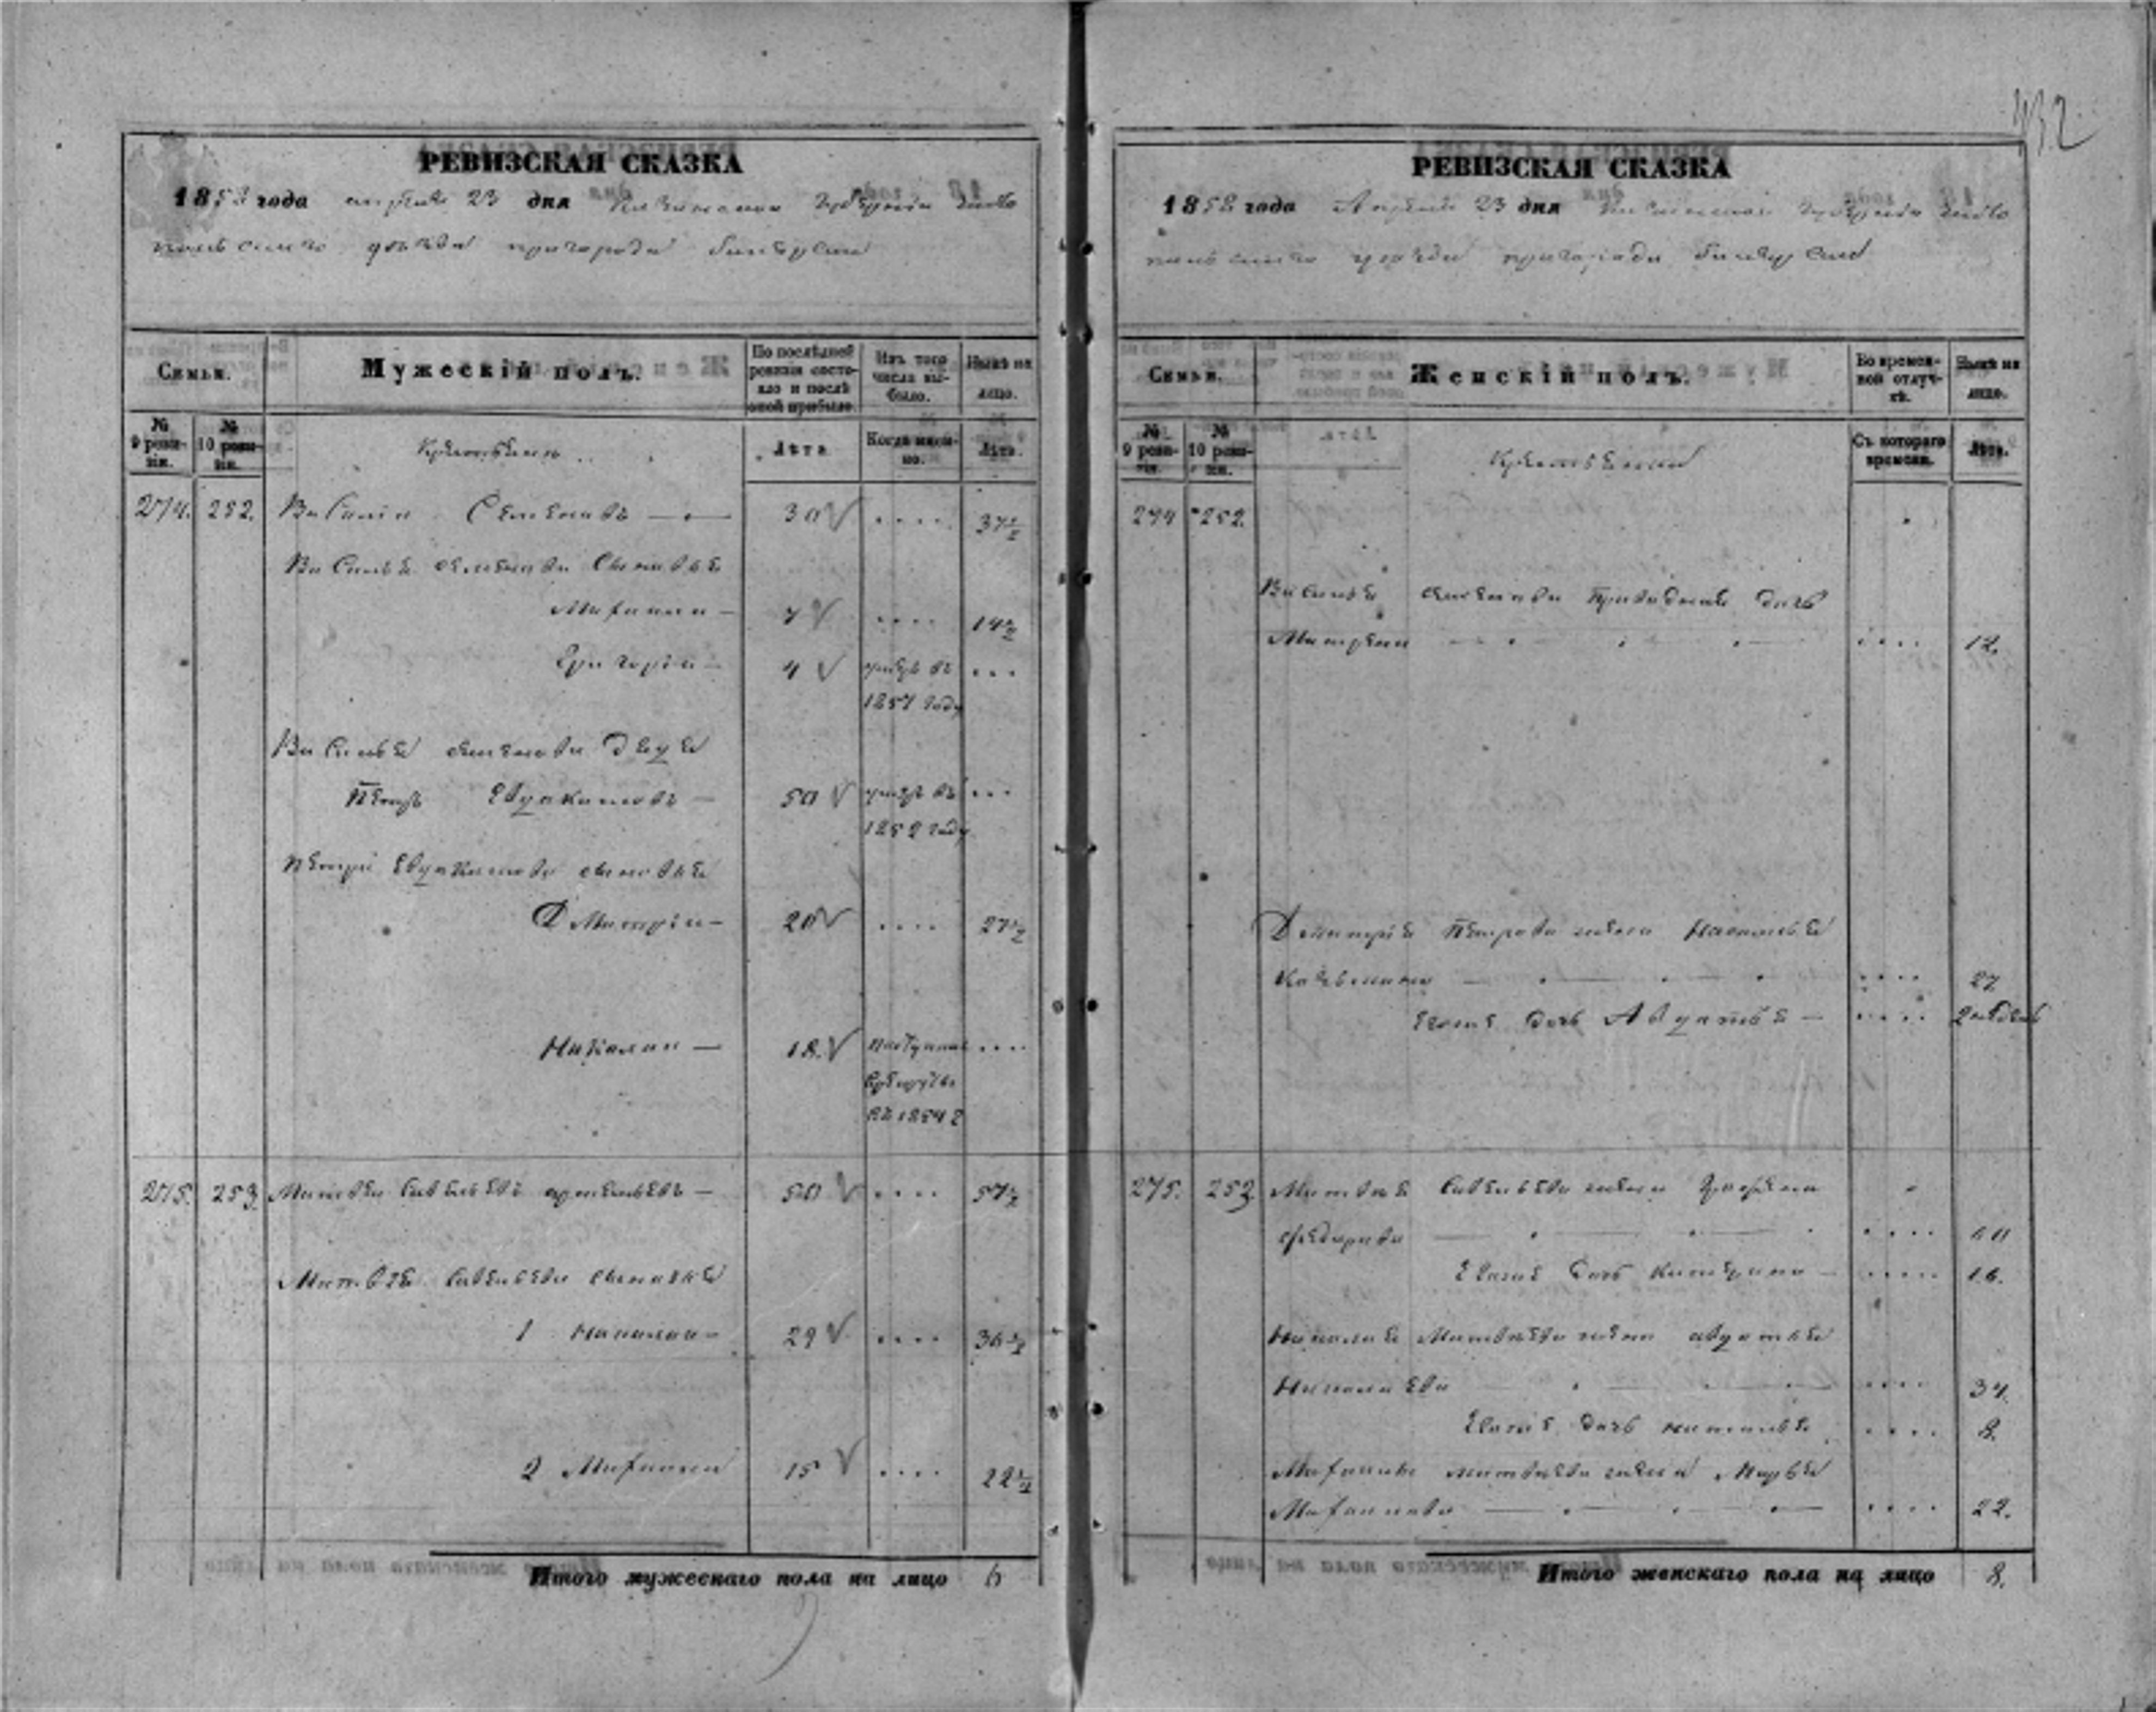 432
РЕВИЗСКАЯ СКАЗКА
1858 года апреля 23 дня Казанской Губернии Чисто
польскаго уезда пригорода билярска
Семьи.
Мужескій полъ.
По послѣдней ревизіи состояло и послѣ оной прибыло.
Изъ того числа выбыло.
Нынѣ на лицо.
№ 9 ревизіи.
№ 10 ревизіи.
Крестьяни
Лѣта
Когда именно.
Лѣта.
274. 252. Василіи Семеновъ — 30 .... 37 1/2
Василья семенова Сыновья
Михаила — 7 .... 14 1/2
Григореи — 4 умеръ въ ...
1857 году
Василья семенова Дядя
Петръ Евдокимовъ — 50 умеръ въ ...
1852 году
петра Евдокимова сыновья
Дмитреи — 20 .... 27 1/2
Николаи — 18. поступилъ ....
Врекруты
въ 1854 г
275. 253. Матвеи савельевъ — 50 .... 57 1/2
Матвея савельева сыновья
1 Николаи — 29 .... 36 1/2
2 Михаила 15 .... 22 1/2
Итого мужескаго пола на лицо 6
РЕВИЗСКАЯ СКАЗКА
1858 года Апреля 23 дня Казанской Губернии Чисто
польскаго уезда пригорода билярска
Семьи.
Женскій полъ.
Во временной отлучкѣ.
Нынѣ на лицо.
№ 9 ревизіи.
№ 10 ревизіи.
Крестьяни
Съ котораго времени.
Лѣта.
274 252.
Василья семенова дочь
Матрена .... 12.
Дмитрея Петрова жена Наталья
.... 27
Евоная дочь Авдотья — ....
275. 253 Матвея Савельева жена
федорова ....
Евоная дочь Катерина — .... 16.
Николая Матвеева жена авдотья
Николаева .... 34.
Евоная дочь наталья .... 8.
Михаила матвеева жена Марья
Михаилова .... 22.
Итого женскаго пола на лицо 8.